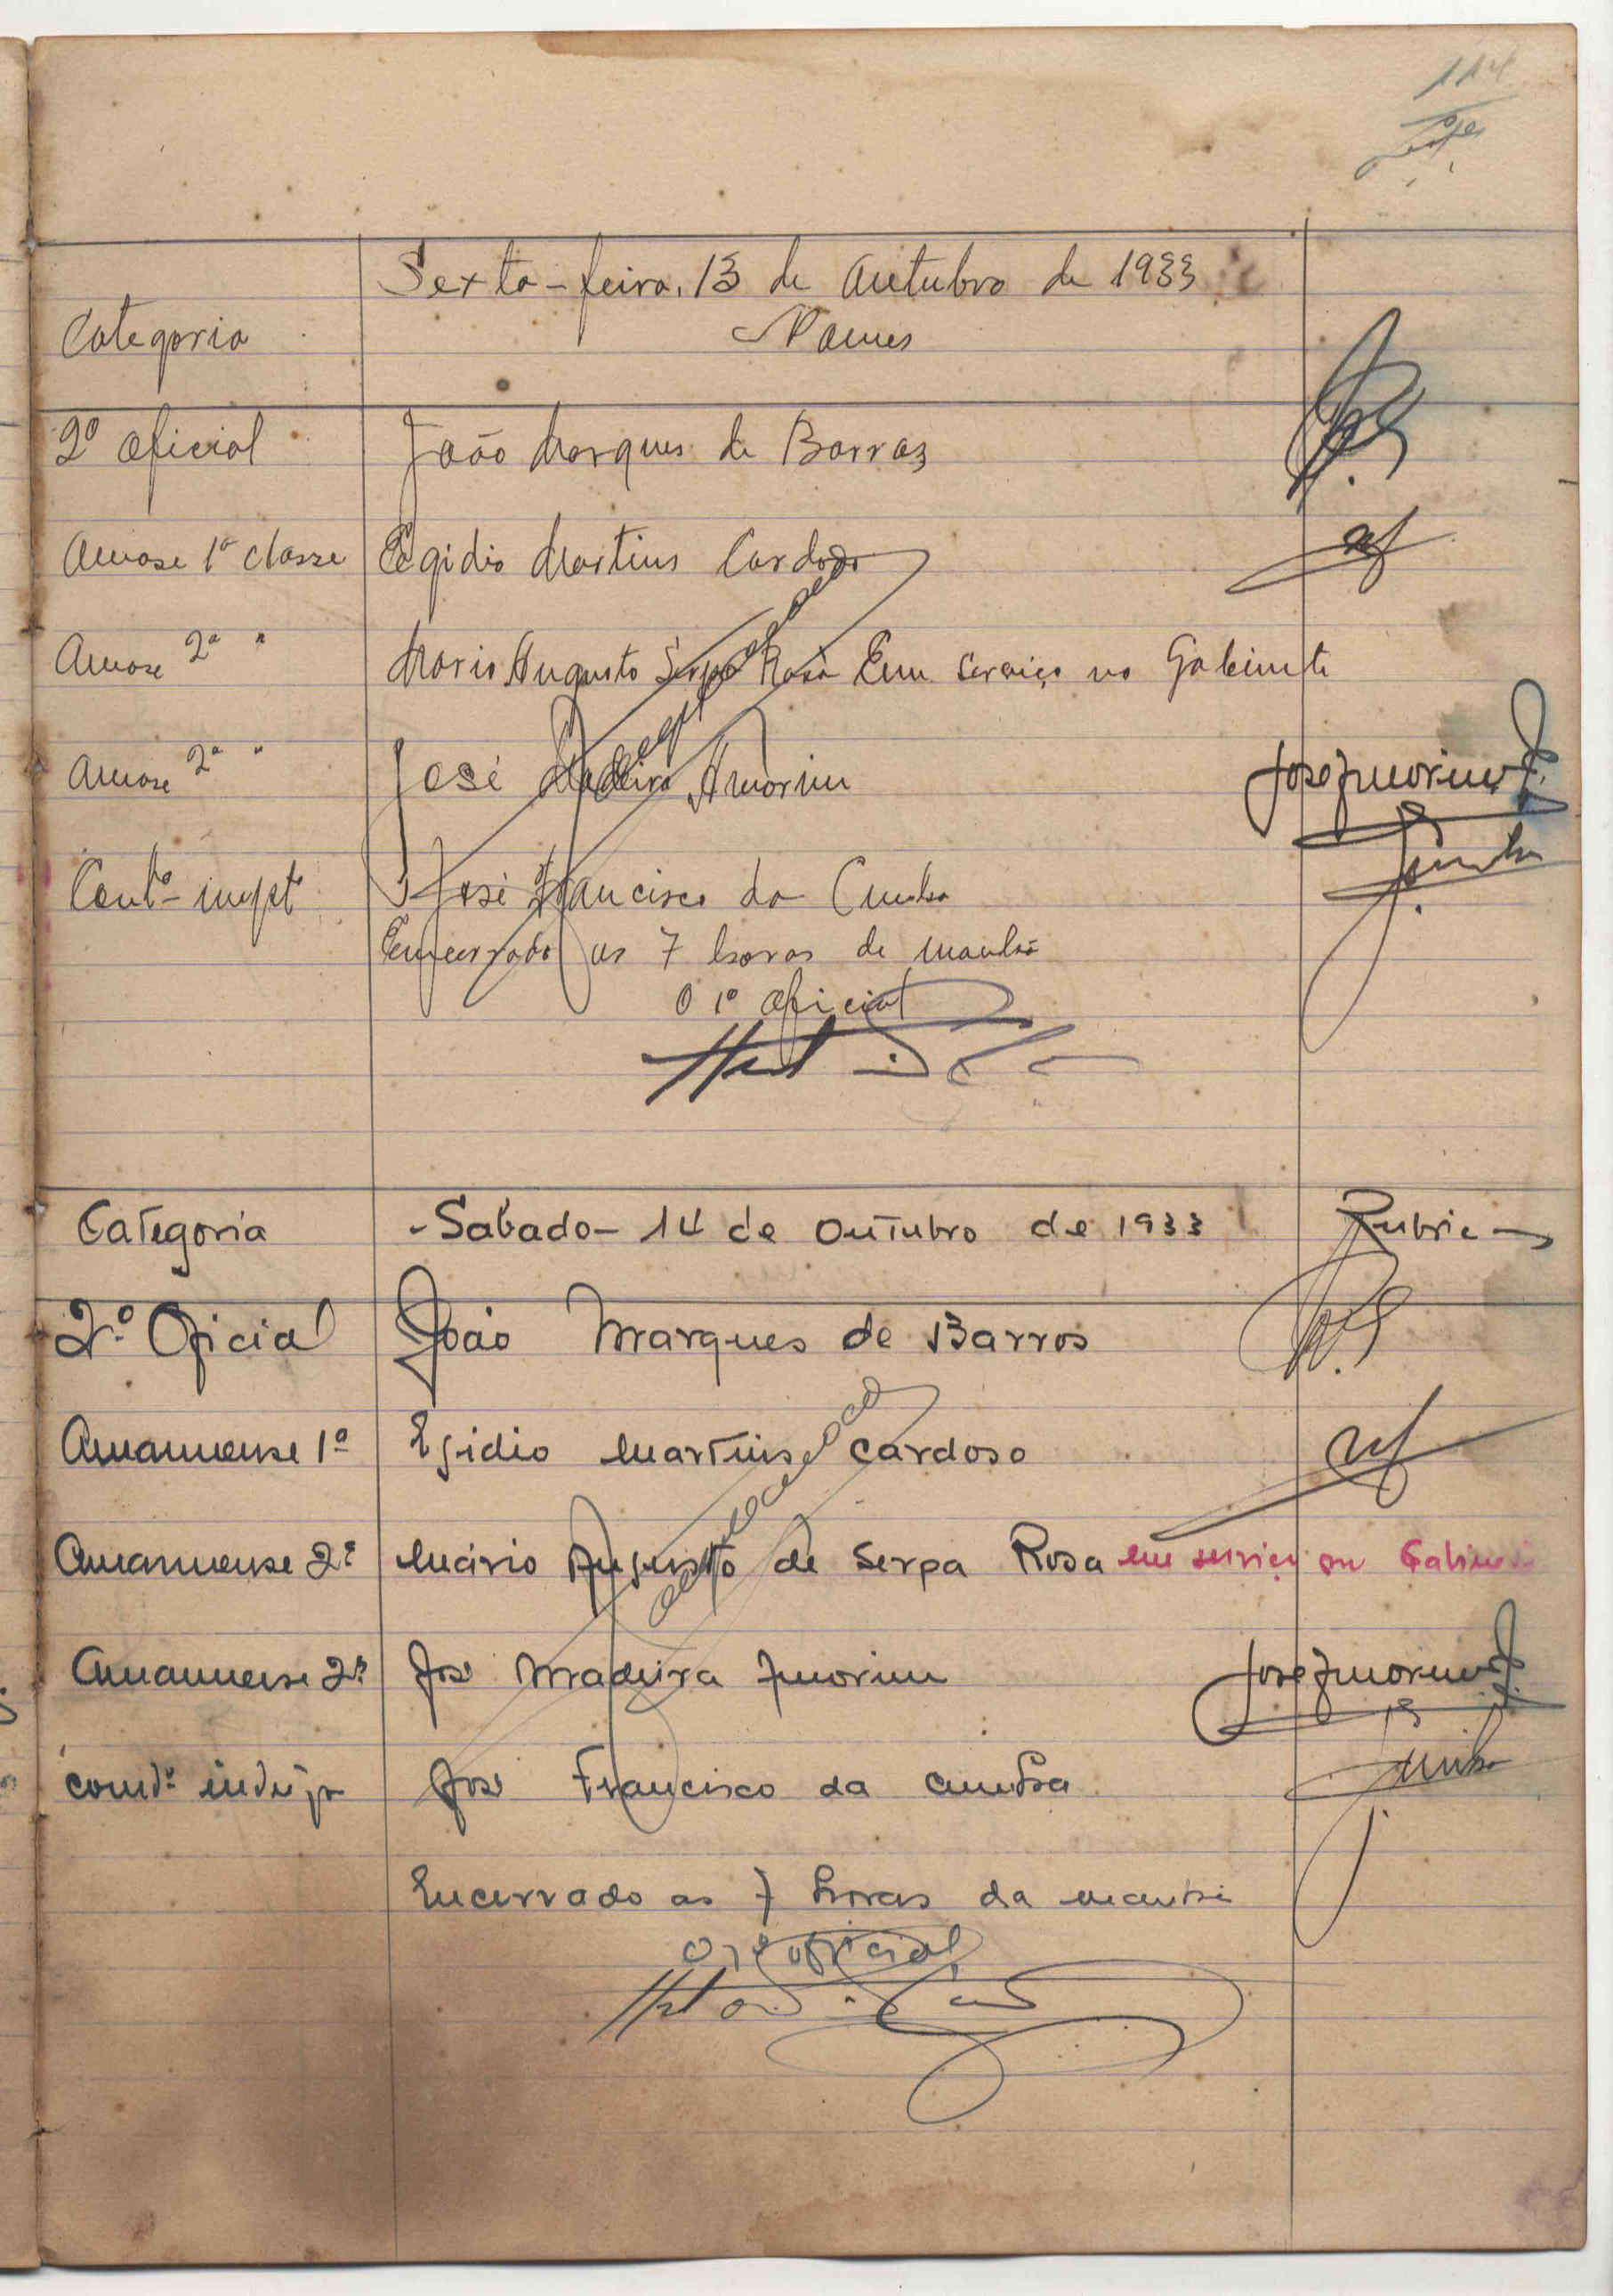 114
Sexta-feira, 13 de Outubro de 1933
Categoria Nomes
2º Oficial João Marques de Barros
Amase 1ª classe Egidio Martins Cardoso
Amase 2ª " Mario Augusto Serpa Rosa Em serviço no Gabinete
Amase 2ª " José Madeira Amorim JoséAmorim
José Francisco da Cunha Cunha
Encerrado as 7 horas da manhã
O 1º Oficial
Categoria -Sabado- 14 de Outubro de 1933 Rubric
2.º Oficial João Marques de Barros
Amanuense 1º Egidio Martins Cardoso
Amanuense 2º Mário Augusto de Serpa Rosa em serviço no Gabinete
Amanuense 2º José Madeira Amorim JoséAmorim
José Francisco da Cunha Cunha
Encerrado as 7 horas da manhã
O 1º oficial